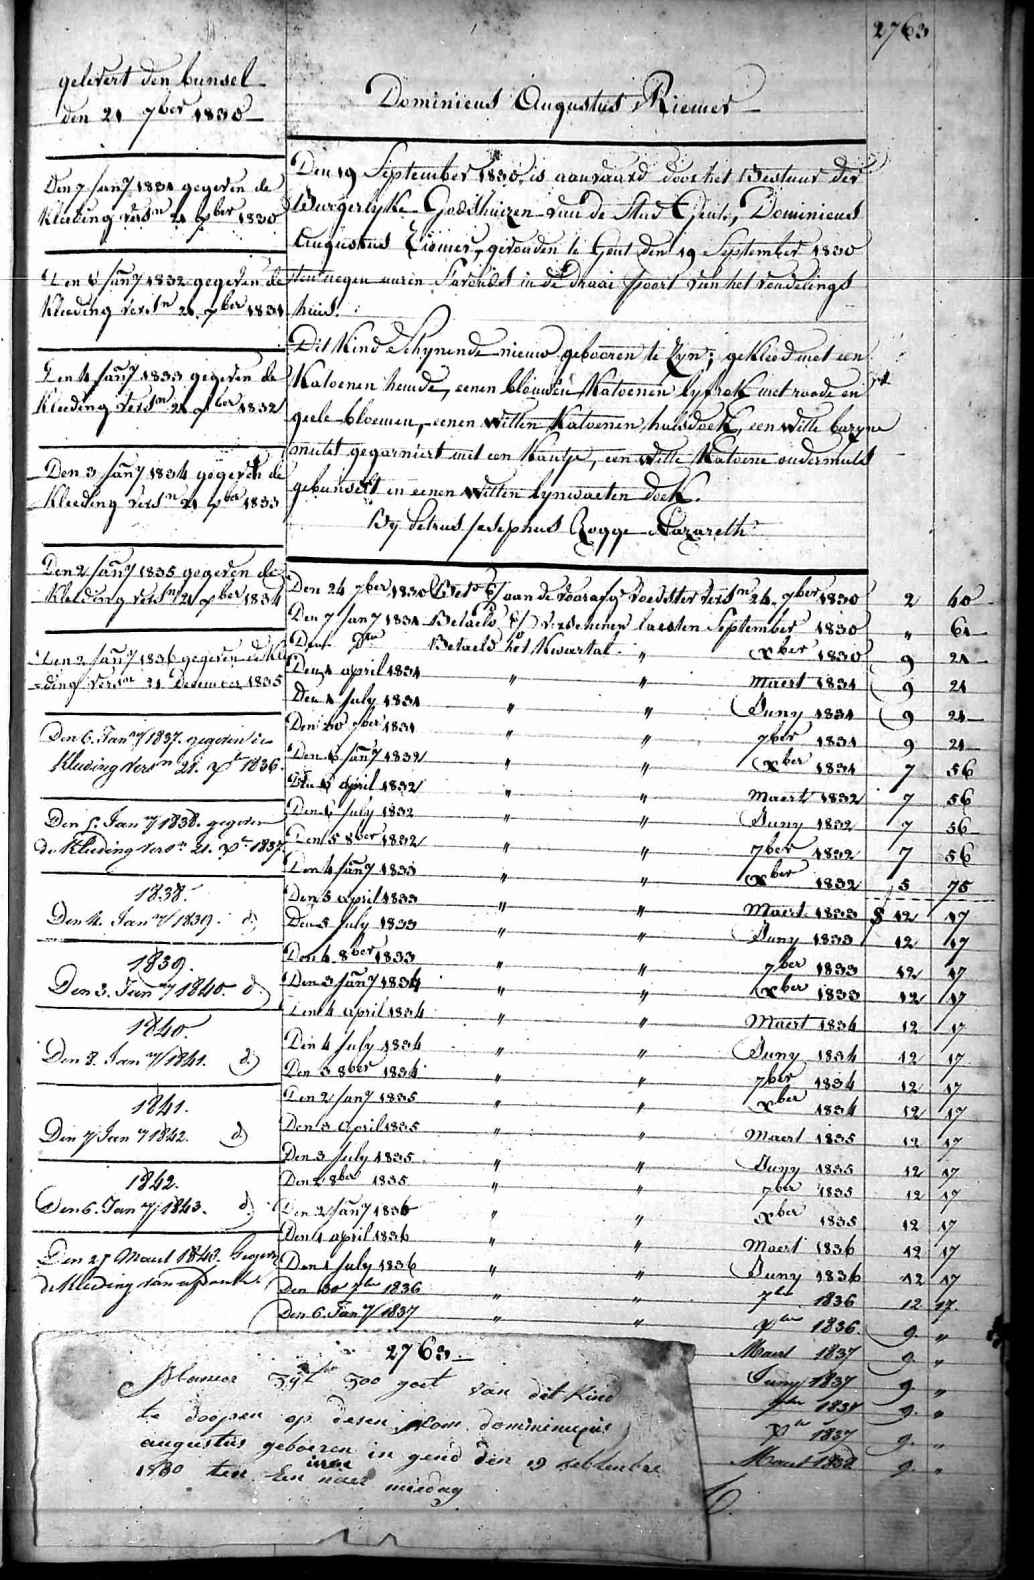 2763
gelevert den bunsel
den 21 7ber 1830
Den 7 Jany 1831 gegeven de
Kleeding versn 21 xber 1830
Den 6 Jany 1832 gegeven de
Kleeding versn 21 xber 1831
Den 4 Jany 1833 gegeven de
Kleeding versn 21 xber 1832
Den 3 Jany 1834 gegeven de
Kleeding versn 21 xber 1833
Den 2 Jany 1835 gegeven de
Kleeding versn 21 xber 1834
Den 2 Jany 1836 gegeven de Klee
ding versn 21 December 1835
Den 6. Jany 1837. gegeven de
Kleeding versn 21. xr 1836.
Den 5. Jany 1838. gegeven
de Kleeding versn 21. xr 1837.
1838.
Den 4. Jany 1839. d)
1839.
Den 3. Jany 1840. d)
1840.
Den 8. Jany 1841. d)
1841.
Den 7 Jany 1842. d)
1842.
Den 6. Jany 1843. d)
Den 27 Maert 1843. Gegeven
de Kleeding van
Dominicus Augustus Riemer
Den 19 September 1830, is aanvaard door het Bestuur der
Burgerlyke Godshuizen van de Stad Gent, Dominicus
Augustus Riemer, gevonden te Gent den 19 September 1830
ten negen uuren S'avonds in de draai poort van het vondelings
huis.
Dit Kind Schynende nieuw gebooren te zyn; gekleed met een
Katoenen hemde, eenen blouwen Katoenen lyfrok met roode en
geele bloemen, eenen witten Katoenen halsdoek, een witte bazyne
muts gegarniert met een Kantje, een witte Katoene ondermuts
gebunselt in eenen witten lynwaeten doek.
By Petrus Josephus Rogge Nazareth
Den 24 7ber 1830 aan de voedster versn 24 7ber 1830 2 40
Den 7 Jany 1831 Betaeld verschenen laesten September 1830 " 61
Den do Betaeld het Kwartal " xber 1830 9 21
Den 1 april 1831 " " Maert 1831 9 21
Den 1 July 1831 " " Juny 1831 9 21
Den 30 7ber 1831 " " 7ber 1831 9 21
Den 6 Jany 1832 " " xber 1831 7 56
Den 6 april 1832 " " Maert 1832 7 56
Den 6 July 1832 " " Juny 1832 7 56
Den 5 8ber 1832 " " 7ber 1832 7 56
Den 4 Jany 1833 " " xber 1832 5 75
Den 5 april 1833 " " Maert 1833 12 17
Den 5 July 1833 " " Juny 1833 12 17
Den 4 8ber 1833 " " 7ber 1833 12 17
Den 3 Jany 1834 " " xber 1833 12 17
Den 4 april 1834 " " Maert 1834 12 17
Den 4 July 1834 " " Juny 1834 12 17
Den 3 8ber 1834 " " 7ber 1834 12 17
Den 2 Jany 1835 " " xber 1834 12 17
Den 3 April 1835 " " Maert 1835 12 17
Den 3 July 1835 " " Juny 1835 12 17
Den 2 8ber 1835 " " 7ber 1835 12 17
Den 2 Jany 1836 " " xber 1835 12 17
Den 1 april 1836 " " Maert 1836 12 17
Den 1 July 1836 " " Juny 1836 12 17
Den 30 7ber 1836 " " 7ber 1836 12 17
Den 6. Jany 1837 " " xber 1836. 9. "
Maert 1837 9. "
Juny 1837 9. "
7ber 1837 9. "
xr 1837 9. "
Maert 1838 9. "
2763
soo goet van dit kind
te doopen op desen nom dominincus
augustus geboeren in gend den 19 sebtembre
1830 ten uren naer midag